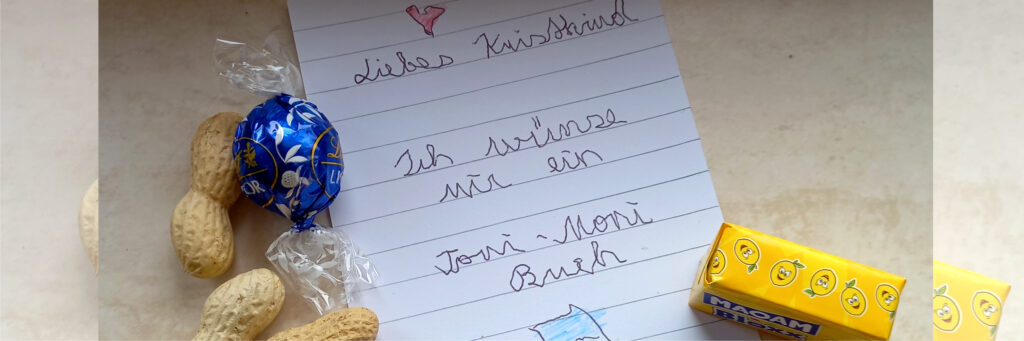 Liebes Kristkind
Ich wünse
mir ein
Toni-Moni
Buch
MAOAM
BLOXX